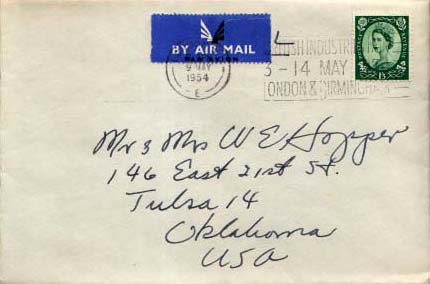 BY AIR MAIL
PAR AVION
MAY
1954
E
ISH INDUSTR
3-14 MAY
LONDON & BIRMINGHAM
1/3
Mr & Mrs W E Hopper
146 East 21st St.
Tulsa 14
Oklahoma
USA